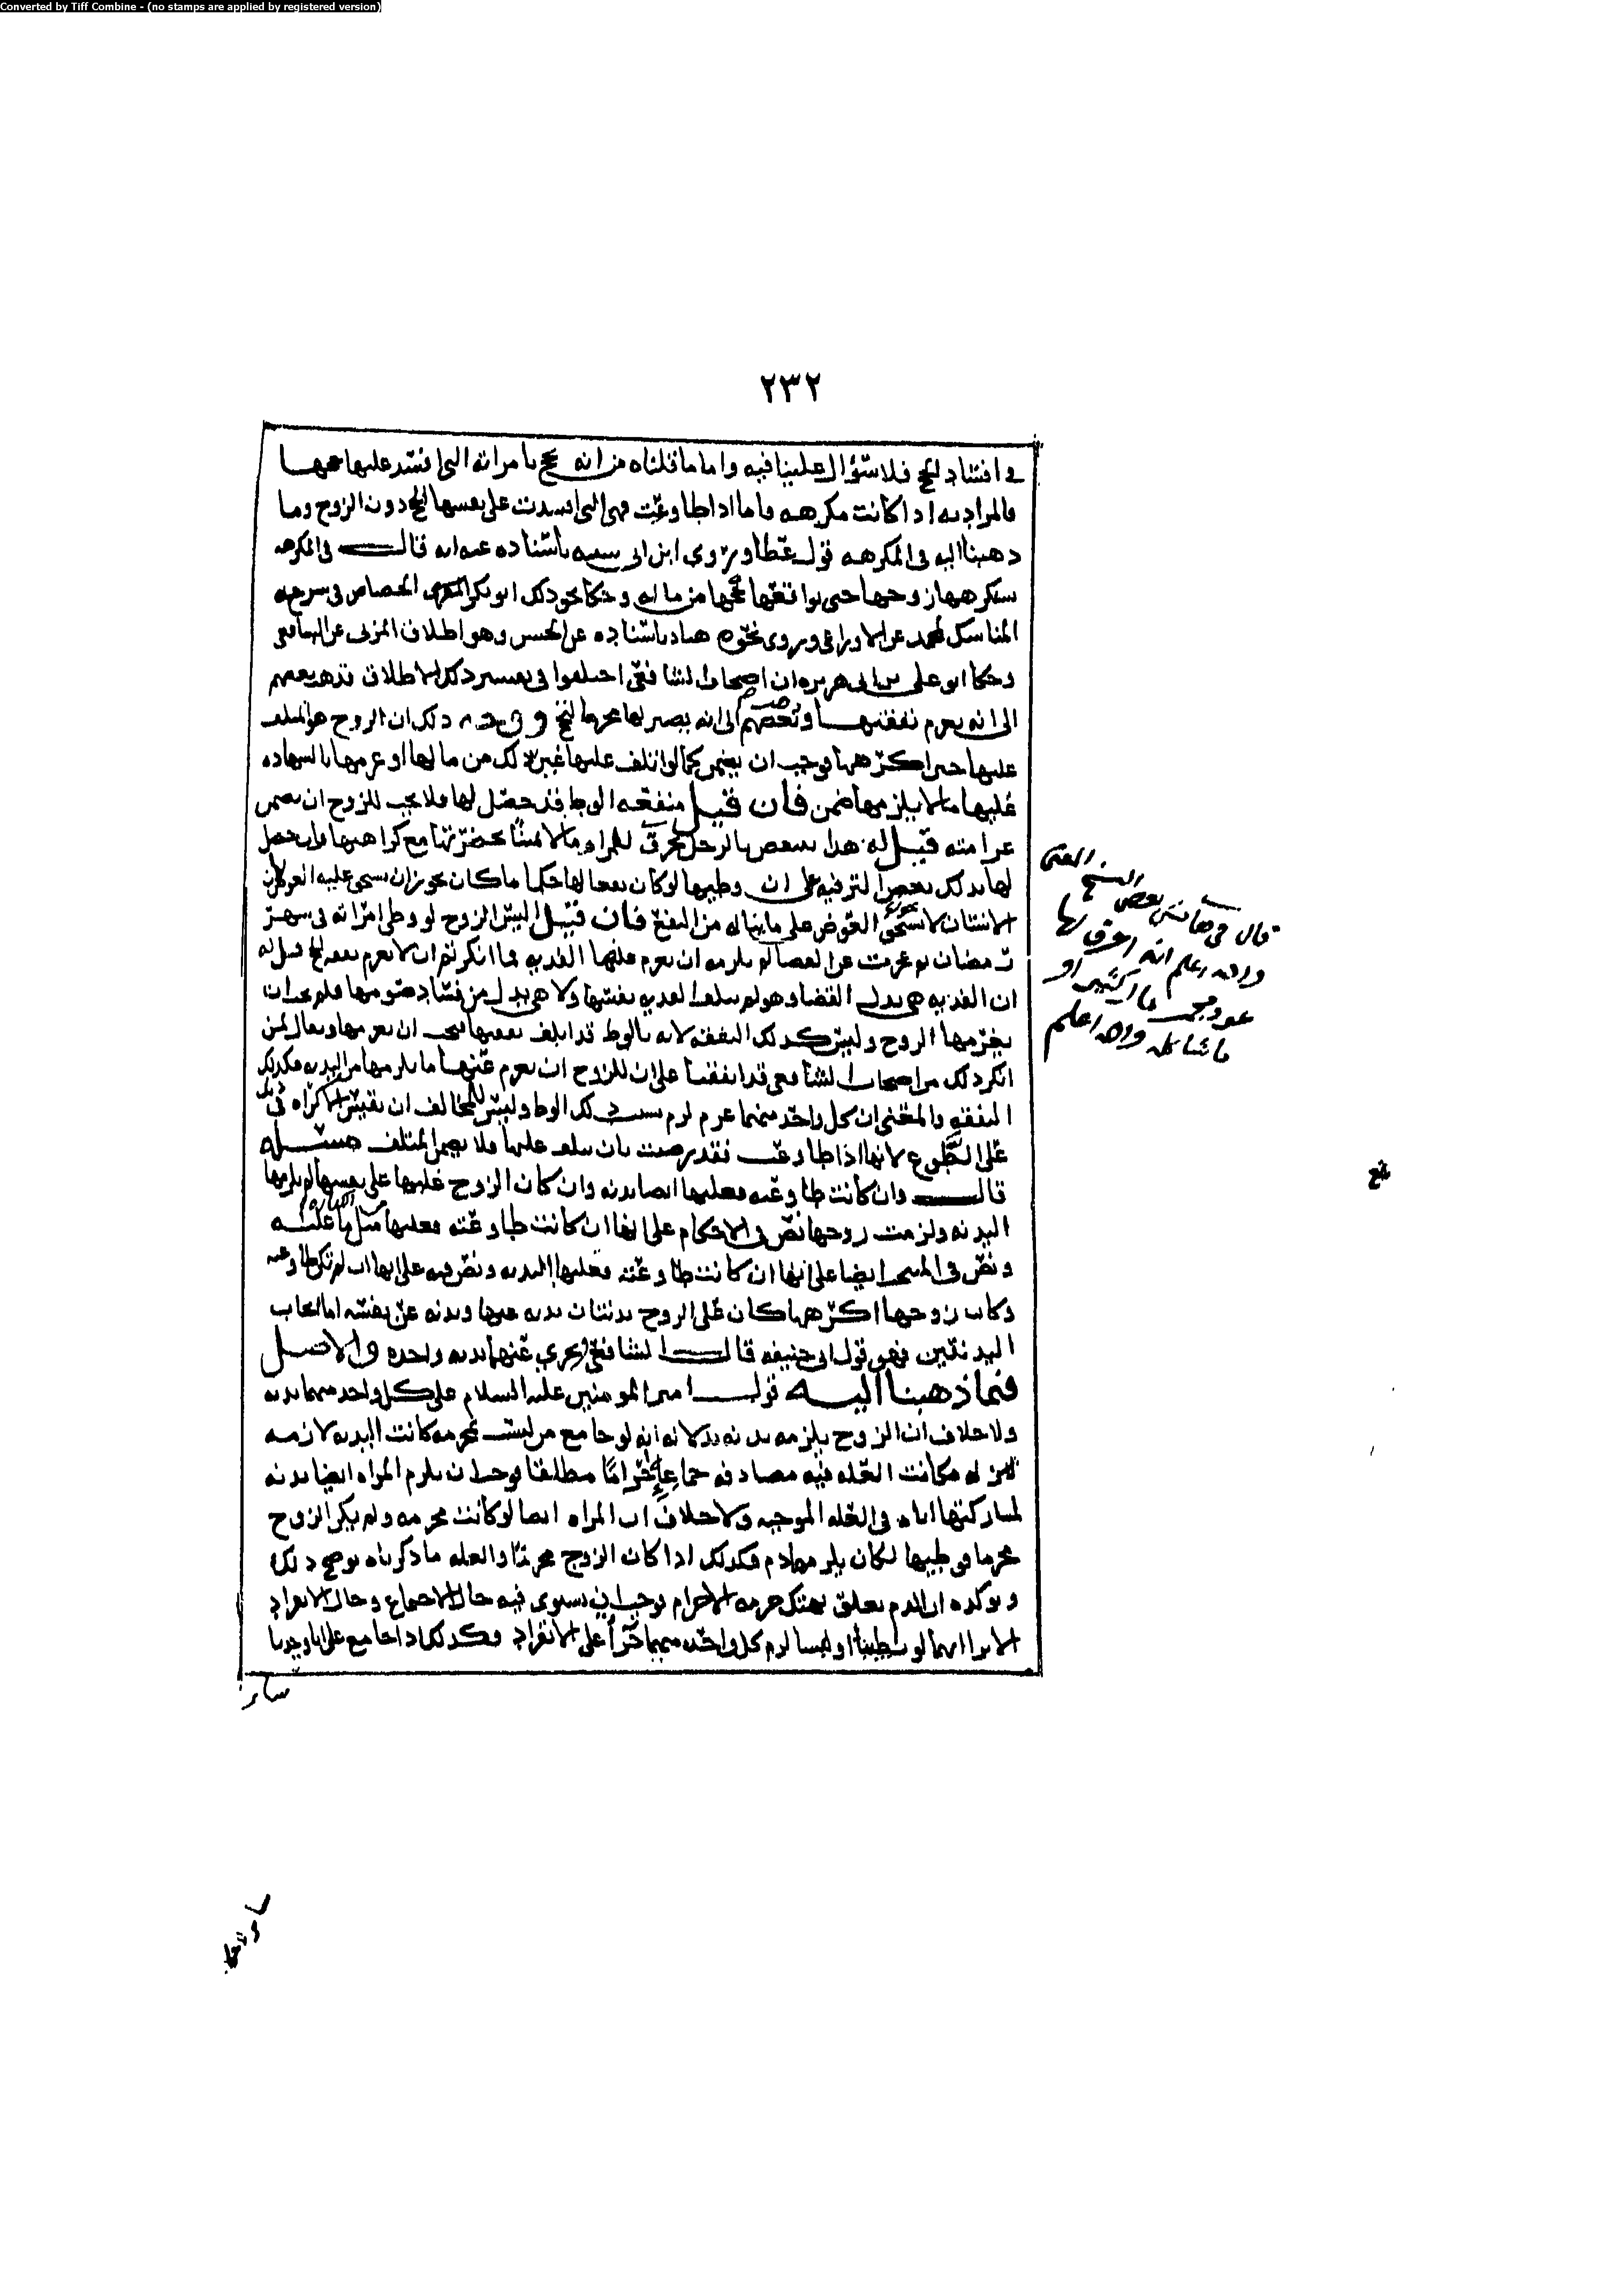 Converted by Tiff Combine - (no stamps are applied by registered version)
٢٣٢
في افساد الحج فلا سؤال علينا فيه واما ما قلناه من انه يحج بامراته التي افسد عليها حجها
فالمراد به اذا كانت مكرهه فاما اذا طاوعت فهي التي افسدت على نفسها الحج دون الزوج وما
ذهبنا اليه في المكرهه قول عطا وروى ابن ابي شيبه باسناده عنه انه قال في المكرهه
يستكرهها زوجها حتى يواقعها يحجها من ماله وحكا نحو ذلك ابو بكر الجصاص في شرحه
المناسك لمحمد عن الاوزاعي وروى نحوه هناد باسناده عن الحسن وهو اطلاق المزني عن الشافعي
وحكا ابو علي بن ابي هريره ان اصحاب الشافعي اختلفوا في تفسير ذلك الاطلاق فذهب بعضهم
الى انه يغرم نفقتها وبعضهم الى انه يصير لها محرما للحج ووجه ذلك ان الزوج هو المتلف
عليها حين اكرهها فوجب ان يضمن كما لو اتلف عليها غير ذلك من مالها او غرمها بالشهاده
عليها مالا يلزمها ضمن فان قيل منفعه الوطء قد حصل لها فلا يجب للزوج ان يضمن
غرامته قيل له هذا ينتقض بالرجل يحرق للمراه مالا ثمينا بحضرتها مع كراهتها وان حصل
لها بذلك بعض الترفيه على ان وطيها لو كان نفعا لها حكما ما كان يجوز ان يستحق عليه العوض لان
الانسان لا يستحق العوض على ما يناله من النفع فان قيل اليس الزوج لو وطي امراته في شهر
رمضان ثم عجزت عن القضا لم يلزمه ان يغرم عنها الفديه فما انكرتم ان لا يغرم نفقه الحج قيل له
ان الفديه هي بدل القضا وهو لم يتلف الفديه نفسها ولا هي بدل من فساد صومها فلم يجب ان
يغرمها الزوج وليس كذلك النفقه لانه بالوطء قد اتلف نفقتها فيجب ان يغرمها ويقال لمن
انكر ذلك من اصحاب الشافعي قد اتفقنا على ان للزوج ان يغرم عنها ما يلزمها من البدنه فكذلك
النفقه والمعنى ان كل واحد منهما غرم لزم بسبب ذلك الوطء وليس للمخالف ان يقيس الاكراه في ذلك
على التطوع لانها اذا طاوعت فقد رضيت بان يتلف عليها فلا يضمن المتلف مسئله
قال وان كانت طاوعته فعليها ايضا بدنه وان كان الزوج غلبها على نفسها لم يلزمها
البدنه ولزمت زوجها نص في الاحكام على انها ان كانت طاوعته فعليها مثل ما عليه
ونص في المنتخب ايضا على انها ان كانت طاوعته فعليها البدنه ونص فيه على انها ان لم تكن طاوعته
وكان زوجها اكرهها كان على الزوج بدنتان بدنه عنها وبدنه عن نفسه اما ايجاب
البدنتين فهو قول ابي حنيفه قال الشافعي يجزي عنهما بدنه واحده والاصل
فيما ذهبنا اليه قول امير المومنين عليه السلام على كل واحد منهما بدنه
ولا خلاف ان الزوج يلزمه بدنه بدلاله انه لو جامع من ليست بمحرمه كانت البدنه لازمه
له فكانت العله فيه مصادفه جماعه احراما مطلقا فوجب ان يلزم المراه ايضا بدنه
لمشاركتها اياه في العله الموجبه ولا خلاف ان المراه ايضا لو كانت محرمه ولم يكن الزوج
محرما فوطيها لكان يلزمها دم فكذلك اذا كان الزوج محرما والعله ما ذكرناه يوضح ذلك
ويوكده ان الدم تعلق بهتك حرمه الاحرام فوجب ان يستوي فيه حال الاجتماع وحال الانفراد
الا ترا انهما لو تطيبا او لبسا لزم كل واحد منهما جزا على الانفراد وكذلك اذا جامع على انا وجدنا
ساير
قال في هامش بعض النسخ
والله اعلم انه احرق لها
عود بخور
ما شاكله والله اعلم